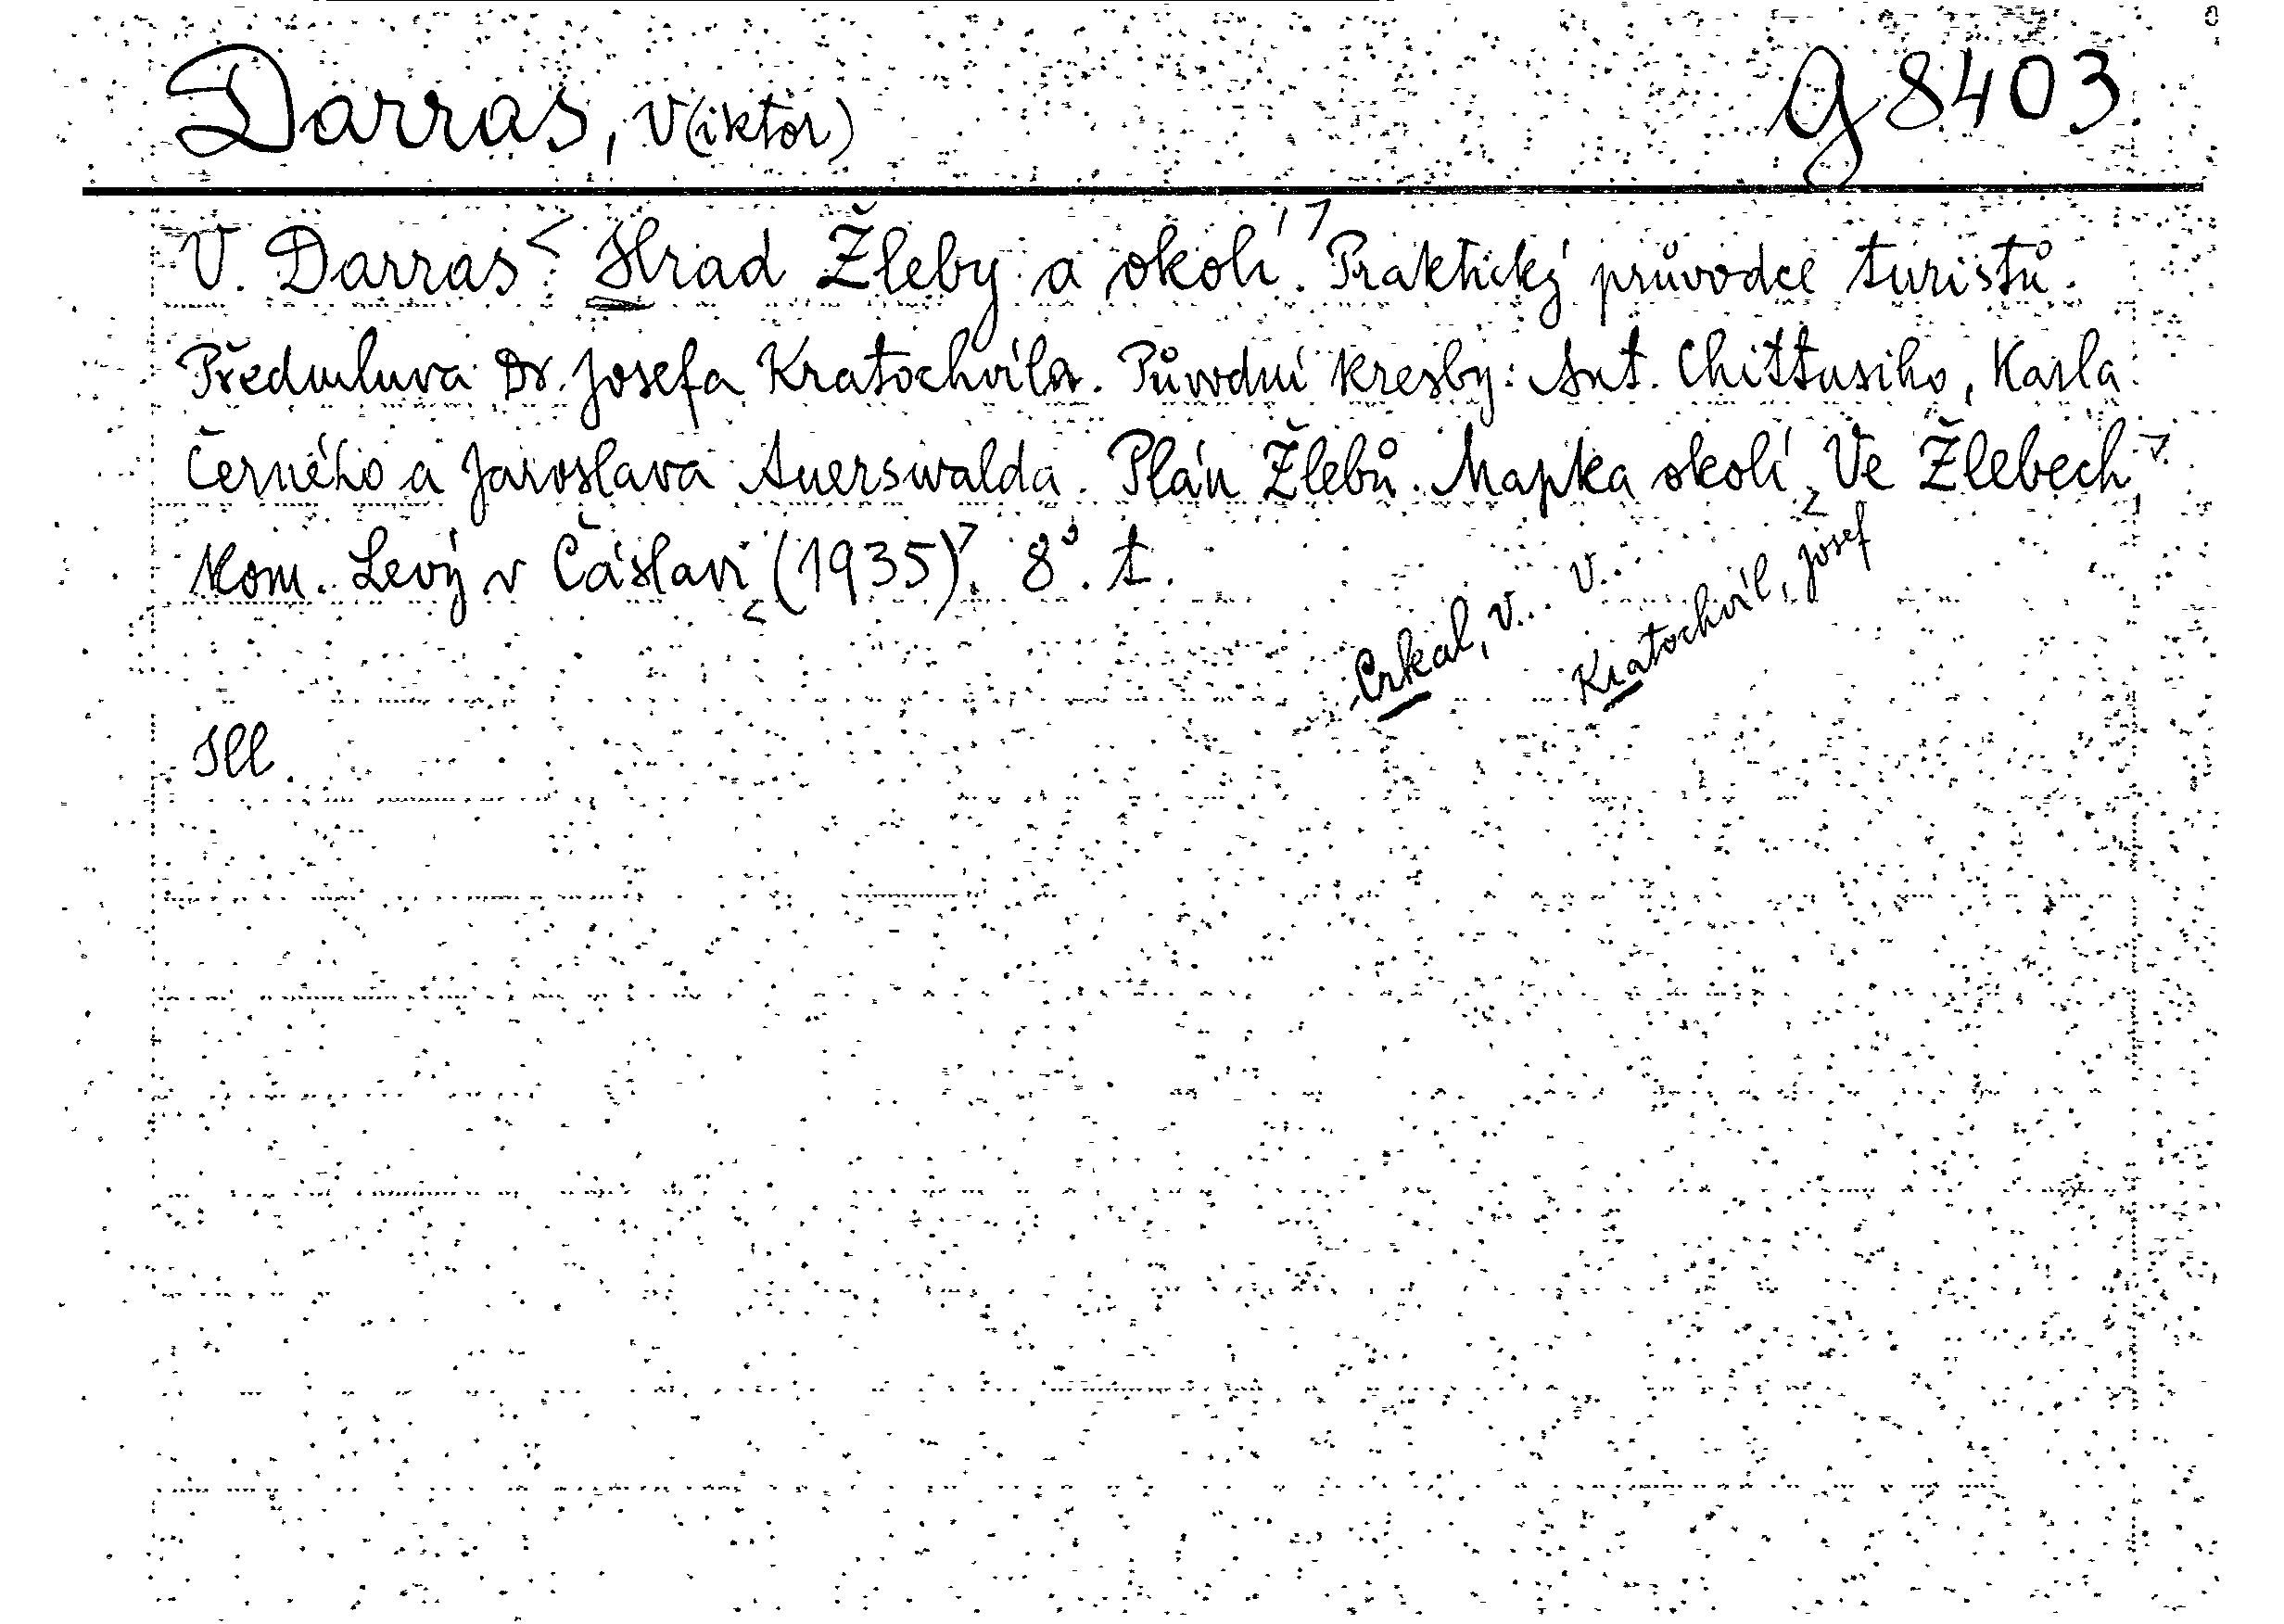 Darras, V(iktor) g 8403
V. Darras < Hrad Žleby a okolí. > Praktický průvodce turistů.
Předmluva Dr. Josefa Kratochvíla. Původní kresby: Ant. Chittusiho, Karla
Černého a Jaroslava Auerswalda. Plán Žlebů. Mapka okolí < Ve Žlebech, >
Kom. Levý v Čáslavi < (1935) >. 8°. t.
Crkal, V... V...
Kratochvíl, Josef
Ill.